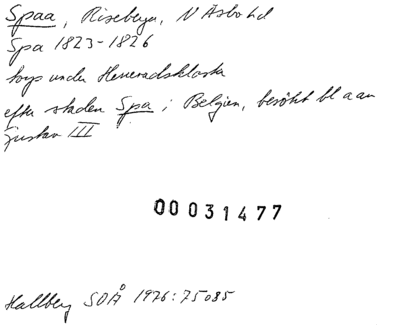 Spaa, Riseberga, N Åsbo hd
Spa 1823-1826
torp under Herrevadskloster
efter staden Spa i Belgien, besökt bl a av
Gustav III
00031477
Hallberg SOÅ 1976:75085